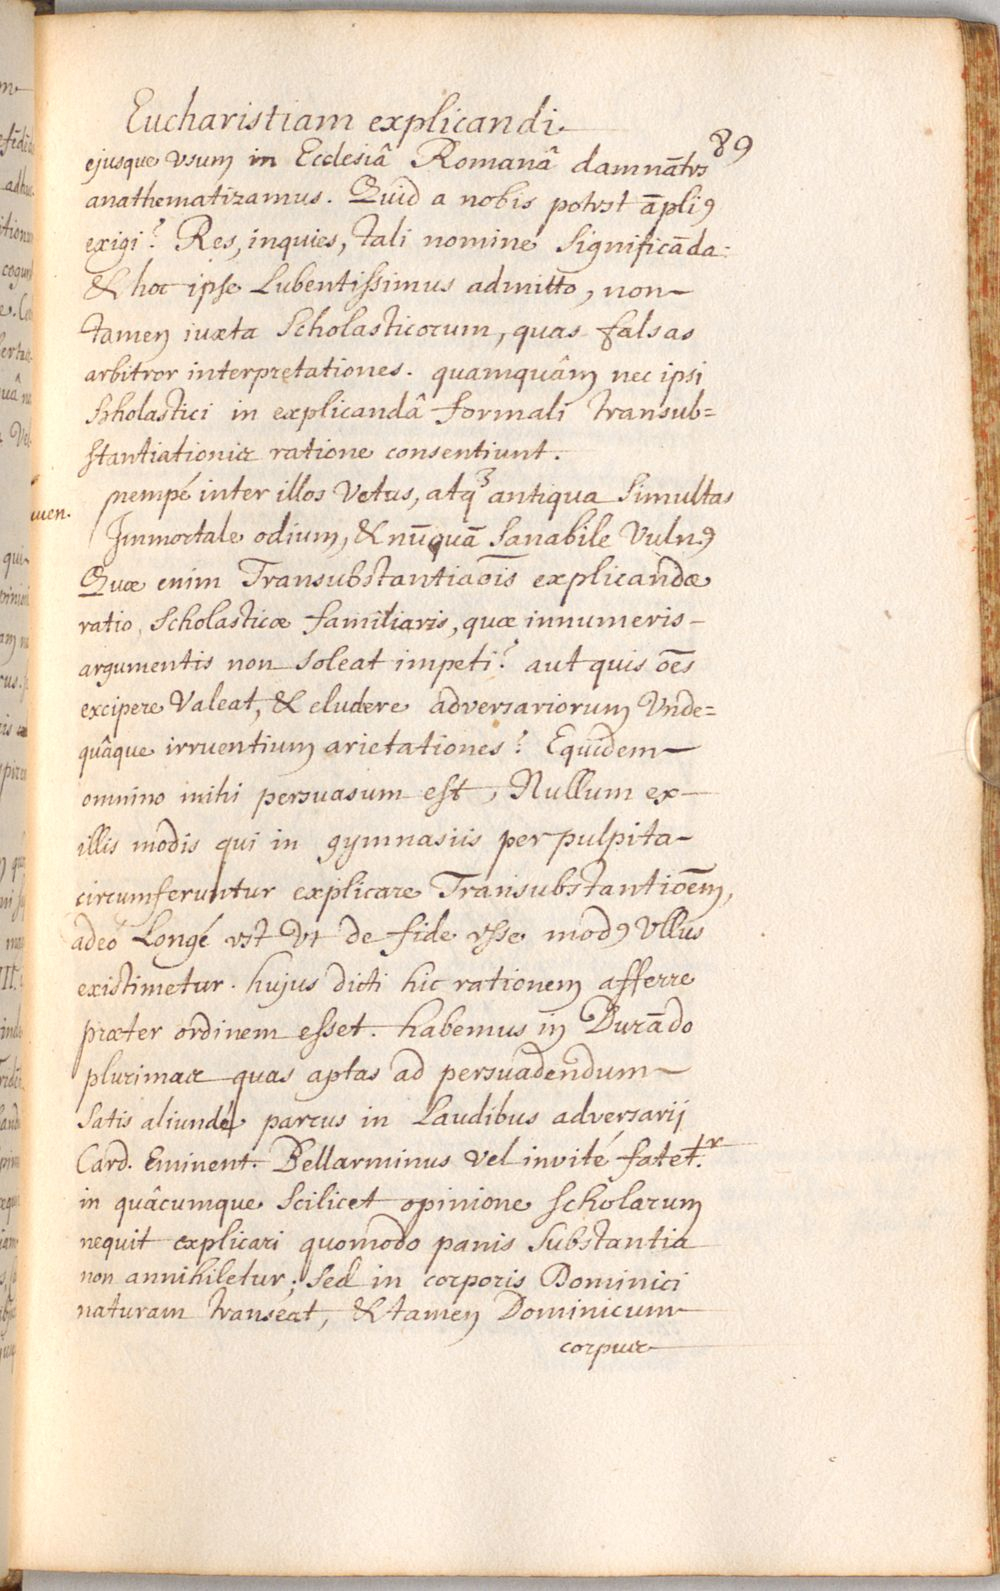 Eucharistiam explicandi
89
ejusque vsum in Ecclesiâ Romanâ damnātes
anathematizamus. Quid a nobis potest āpliꝰ
exigi? Res, inquies, tali nomine significāda:
& hoc ipse Lubentissimus admitto, non
tamen iuxta Scholasticorum, quas falsas
arbitror interpretationes. quamquâm nec ipsi
Scholastici in explicandâ formali transub=
stantiationis ratione consentiunt.
nempé inter illos Vetus, atqꝫ antiqua Simultas
Immortale odium, & nūquā Sanabile Vulnꝰ
Quæ enim Transubstantiaōis explicandæ
ratio Scholasticæ familiaris, quæ innumeris
argumentis non soleat impeti? aut quis oēs
excipere Valeat, & eludere adversariorum Vnde=
quâque irruentium arietationes? Equidem
omnino mihi persuasum est, Nullum ex
illis modis qui in gymnasiis per pulpita
circumferuntur explicare Transubstantiōem,
adeó Longé est Vt de fide esse modꝰ Vllus
existimetur. hujus dicti hic rationem afferre
præter ordinem esset. habemus in Durādo
plurimas quas aptas ad persuadendum
Satis aliundé parcus in Laudibus adversarij
Card. Eminent. Bellarminus vel invité fatet.r
in quâcumque Scilicet opinione scholarum
nequit explicari quomodo panis Substantia
non annihiletur; sed in corporis Dominici
naturam transeat, & tamen Dominicum
corpus